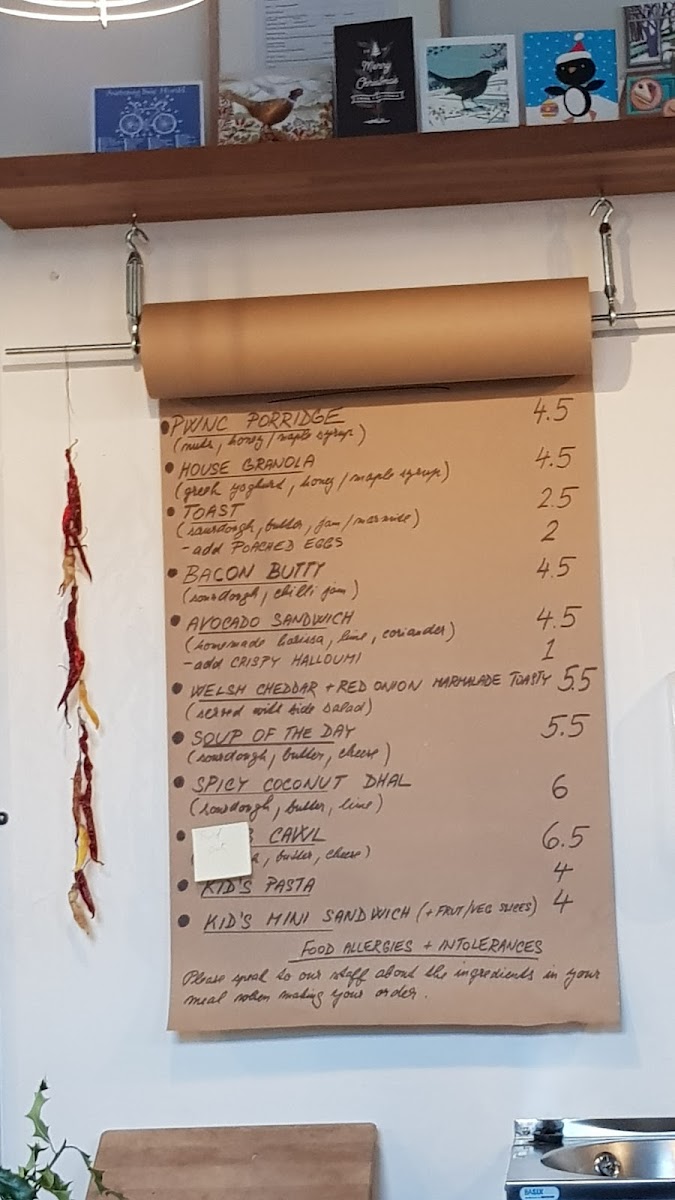 Merry
Christmas
• PWNC PORRIDGE 4.5
(nuts, honey/maple syrup)
• HOUSE GRANOLA 4.5
(greek yoghurt, honey/maple syrup)
• TOAST 2.5
(sourdough, butter, jam/marmite)
- add POACHED EGGS 2
• BACON BUTTY 4.5
(sourdough, chilli jam)
• AVOCADO SANDWICH 4.5
(homemade harissa, lime, coriander)
- add CRISPY HALLOUMI 1
• WELSH CHEDDAR + RED ONION MARMALADE TOASTY 5.5
(served with side salad)
• SOUP OF THE DAY 5.5
(sourdough, butter, cheese)
• SPICY COCONUT DHAL 6
(sourdough, butter, lime)
• CAWL 6.5
, butter, cheese)
• KID'S PASTA 4
• KID'S MINI SANDWICH (+ FRUT/VEG SLICES) 4
FOOD ALLERGIES + INTOLERANCES
Please speak to our staff about the ingredients in your
meal when making your order.
BASIX